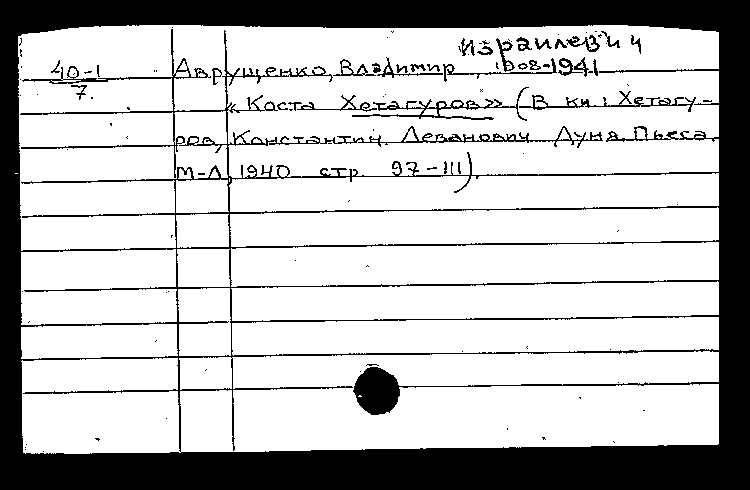 Израилевич
40-1 Аврущенко, Владимир, 1908-1941
7.
«Коста Хетагуров» (В кн: Хетагу-
ров, Константин Леванович Дуня. Пьеса.
М-Л, 1940 стр. 97-111).